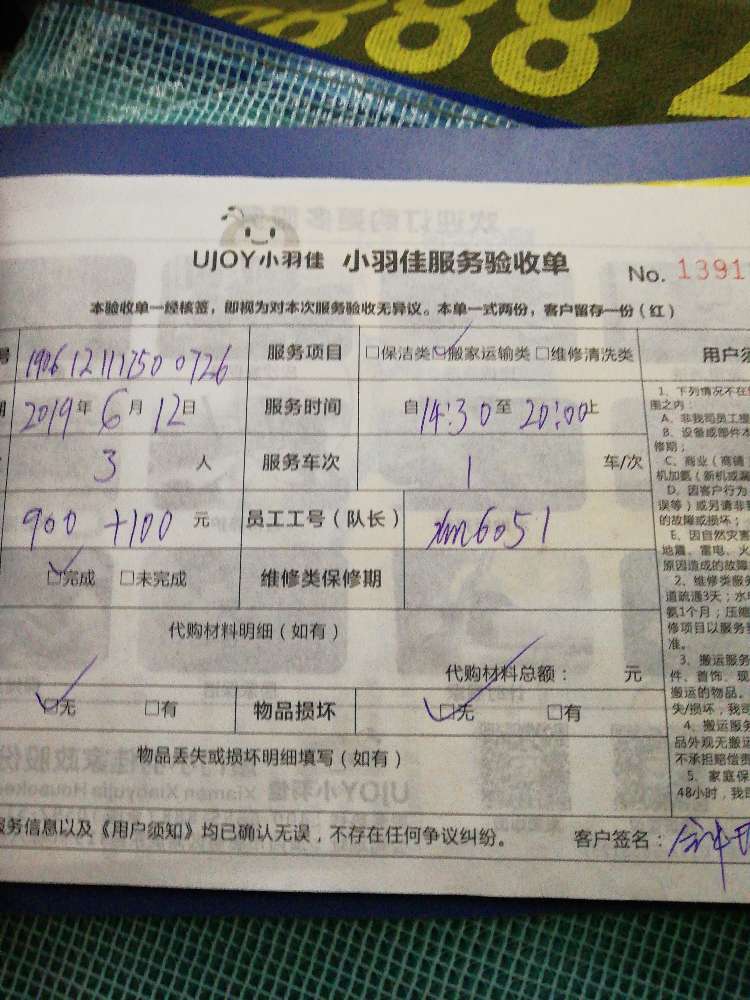 88
UJOY小羽佳 小羽佳服务验收单 No. 1391
本验收单一经核签，即视为对本次服务验收无异议。本单一式两份，客户留存一份（红）
号 1906121117500726 服务项目 □保洁类 ☑搬家运输类 □维修清洗类 用户须
期 2019年6月12日 服务时间 自14:30至20:00止
3人 服务车次 1 车/次
900+100元 员工工号（队长） xm6051
☑完成 □未完成 维修类保修期
代购材料明细（如有）
代购材料总额： 元
☑无 □有 物品损坏 ☑无 □有
物品丢失或损坏明细填写（如有）
服务信息以及《用户须知》均已确认无误，不存在任何争议纠纷。 客户签名：
1、下列情况不在
围之内：
A、非我司员工提
B、设备或部件本
修期；
C、商业（商铺
机加氨（新机或漏
D、因客户行为
误等）或另请非
的故障或损坏；
E、因自然灾害
地震、雷电、火
原因造成的故障
2、维修类服务
道疏通3天；水电
氨1个月；压缩
修项目以服务
准。
3、搬运服务
件、首饰、现
搬运的物品。
失/损坏，我司
4、搬运服务
品外观无搬运
不承担赔偿责
5、家庭保
48小时，我司